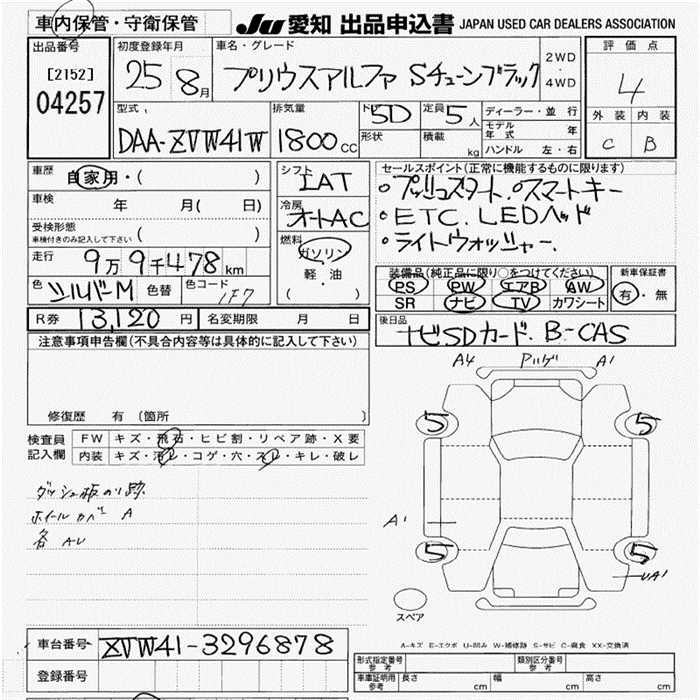 車内保管・守衛保管
JU 愛知 出品申込書 JAPAN USED CAR DEALERS ASSOCIATION
出品番号
[2152]
04257
初度登録年月
25 8月
車名・グレード
プリウスアルファ Sチューンブラック
2WD
・
4WD
評価点
4
外装 内装
C B
型式
DAA-ZVW41W
排気量
1800 CC
5D
形状
定員 5 人
積載 kg
ディーラー・並行
モデル年式 年
ハンドル 左・右
車歴
自家用・( )
車検 年 月( 日)
受検形態
車検付きのみ記入して下さい ( )
走行 9万9千478 km
色 シルバーM 色替 色コード 1F7
シフト
IAT
冷房
オートAC
燃料
ガソリン
・
軽・油
( )
セールスポイント(正常に機能するものに限ります)
・プッシュスタート.・スマートキー
・ETC. LEDヘッド
・ライトウォッシャー.
装備品(純正品に限り○をつけてください)
PS PW エアB AW
SR ナビ TV カワシート
新車保証書
有・無
R券 13,120 円 名変期限 月 日
後日品
ナビSDカード. B-CAS
注意事項申告欄(不具合内容等は具体的に記入して下さい)
修復歴 有 (箇所 )
検査員記入欄
FW キズ・飛石・ヒビ割・リペア跡・X要
内装 キズ・汚レ・コゲ・穴・スレ・キレ・破レ
ダッシュ板のり跡
ホイールカバー A
各 AU
A4 A1
5 5
A1
5 5
UA1
スペア
A-キズ E-エクボ U-凹み W-補修跡 S-サビ C-腐食 XX-交換済
車台番号 ZVW41-3296878
登録番号
形式指定番号
参考
類別区分番号
参考
車庫証明用
参考
長さ cm 幅 cm 高さ cm